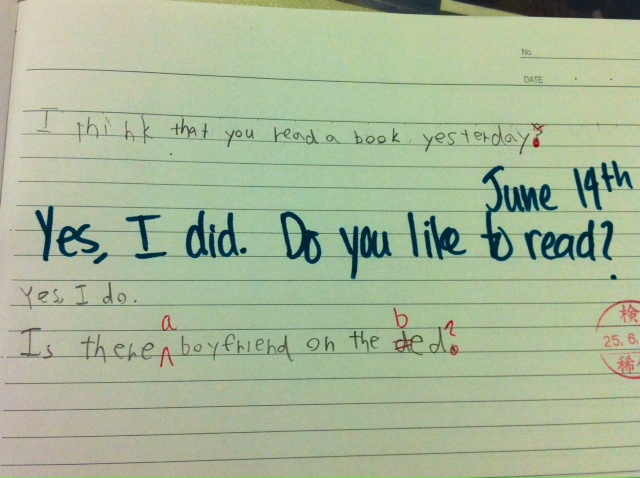 No.
DATE
I think that you read a book yesterday.
June 19th
Yes, I did. Do you like to read?
Yes, I do.
a b
Is there boyfriend on the ded?
検
25.6.